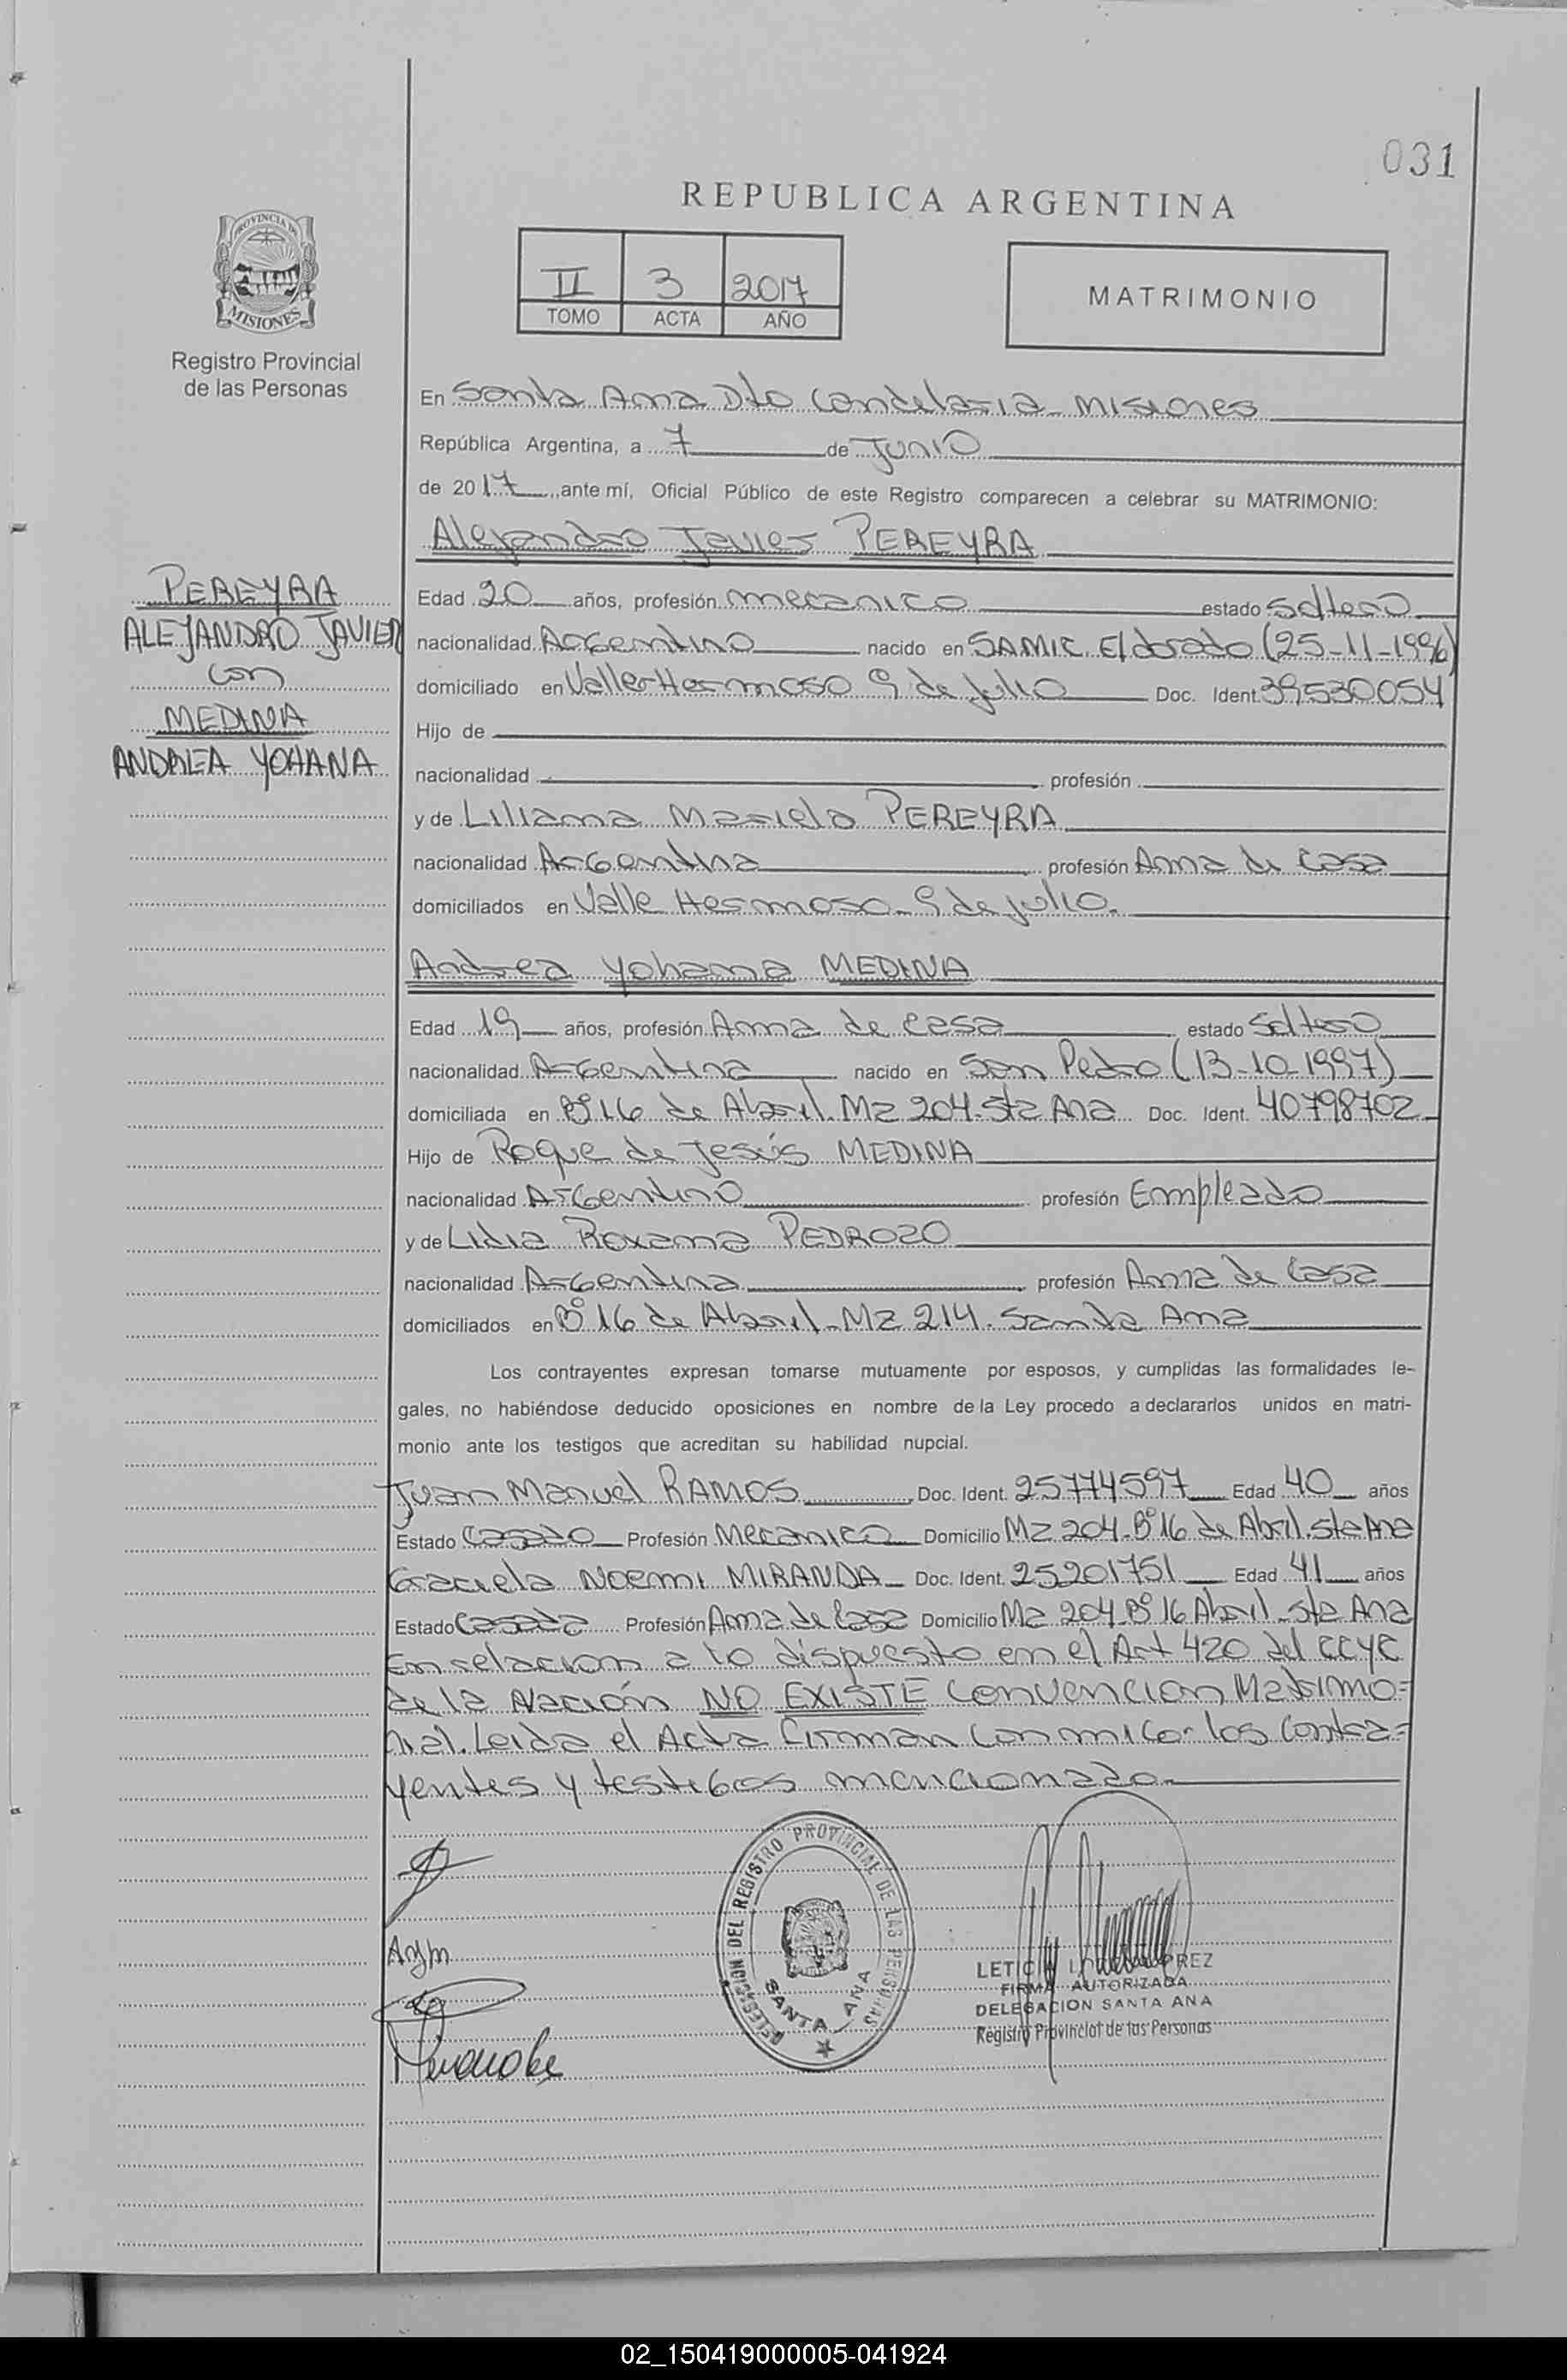 031
REPUBLICA ARGENTINA
PROVINCIA DE
MISIONES
Registro Provincial
de las Personas
II 3 2017
TOMO ACTA AÑO
MATRIMONIO
En Santa Ana Dto Candelaria - Misiones
República Argentina, a 7 de Junio
de 2017 ante mí, Oficial Público de este Registro comparecen a celebrar su MATRIMONIO:
Alejandro Javier PEREYRA
PEREYRA
ALEJANDRO JAVIER
con
MEDINA
ANDREA YOHANA
Edad 20 años, profesión mecanico estado Soltero
nacionalidad Argentino nacido en SAMIC. Eldorado (25-11-1996)
domiciliado en Valle Hermoso 9 de Julio Doc. Ident. 39530054
Hijo de
nacionalidad profesión
y de Liliana Mariela PEREYRA
nacionalidad Argentina profesión Ama de Casa
domiciliados en Valle Hermoso - 9 de julio.
Andrea Yohana MEDINA
Edad 19 años, profesión Ama de casa estado Soltero
nacionalidad Argentina nacido en San Pedro (13-10-1997)
domiciliada en B° 16 de Abril. Mz 204. Sta Ana Doc. Ident. 40798702
Hijo de Roque de Jesús MEDINA
nacionalidad Argentino profesión Empleado
y de Lidia Roxana PEDROZO
nacionalidad Argentina profesión Ama de Casa
domiciliados en B° 16 de Abril - Mz 214. Santa Ana
Los contrayentes expresan tomarse mutuamente por esposos, y cumplidas las formalidades le-
gales, no habiéndose deducido oposiciones en nombre de la Ley procedo a declararlos unidos en matri-
monio ante los testigos que acreditan su habilidad nupcial.
Juan Manuel RAMOS Doc. Ident. 25774597 Edad 40 años
Estado Casado Profesión Mecanico Domicilio Mz 204 - B° 16 de Abril. Sta Ana
Graciela Noemi MIRANDA Doc. Ident. 25201751 Edad 41 años
Estado Casada Profesión Ama de Casa Domicilio Mz 204 - B° 16 Abril - Sta Ana
En relacion a lo dispuesto en el Art 420 del CCYC
de la Nación NO EXISTE Convencion Matrimo=
nial. Leida el Acta firman conmigo - los Contra=
yentes y testigos mencionado
AYM
DELEGACION DEL REGISTRO PROVINCIAL DE LAS PERSONAS
SANTA ANA
FIRMA AUTORIZADA
DELEGACION SANTA ANA
Registro Provincial de las Personas
02_150419000005-041924